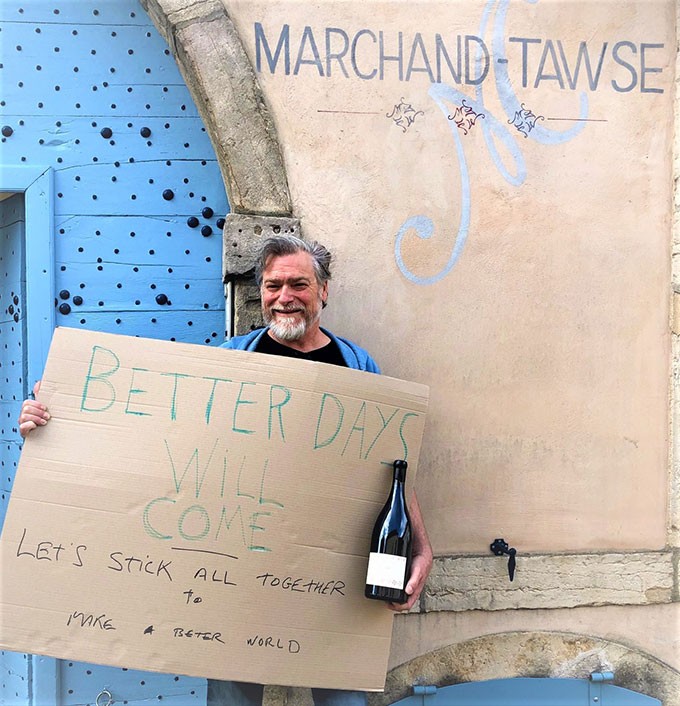 MARCHAND-TAWSE
BETTER DAYS
WILL
COME
LET'S STICK ALL TOGETHER
to
MAKE A BETER WORLD